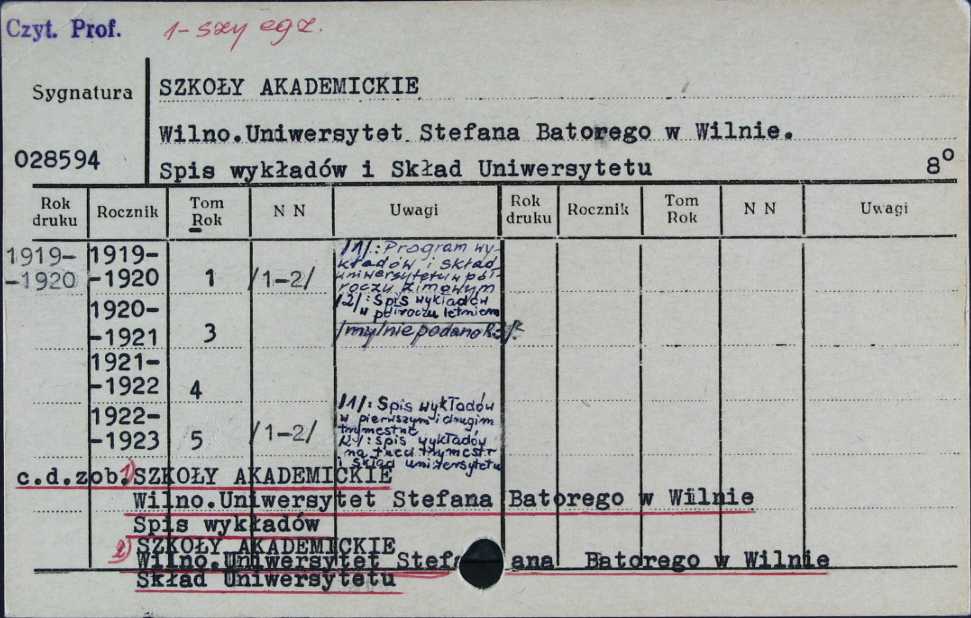 Czyt. Prof. 1-szy egz.
Sygnatura SZKOŁY AKADEMICKIE
Wilno.Uniwersytet Stefana Batorego w Wilnie.
028594 Spis wykładów i Skład Uniwersytetu 8°
Rok druku Rocznik Tom Rok N N Uwagi Rok druku Rocznik Tom Rok N N Uwagi
1919- 1919- /1/: Program wy-
-1920 -1920 1 /1-2/ kładów i skład
uniwersytetu w pół-
roczu zimowym
1920- /2/: Spis wykładów
w półroczu letniem
-1921 3 /mylnie podano R.
1921-
-1922 4 /1/: Spis wykładów
1922- w pierwszym i drugim
trymestrze
-1923 5 /1-2/ /2/: Spis wykładów
na trzeci trymestr
i skład uniwersytetu
c.d.zob. 1) SZKOŁY AKADEMICKIE
Wilno.Uniwersytet Stefana Batorego w Wilnie
Spis wykładów
2) SZKOŁY AKADEMICKIE
Wilno.Uniwersytet Stefa ana Batorego w Wilnie
Skład Uniwersytetu